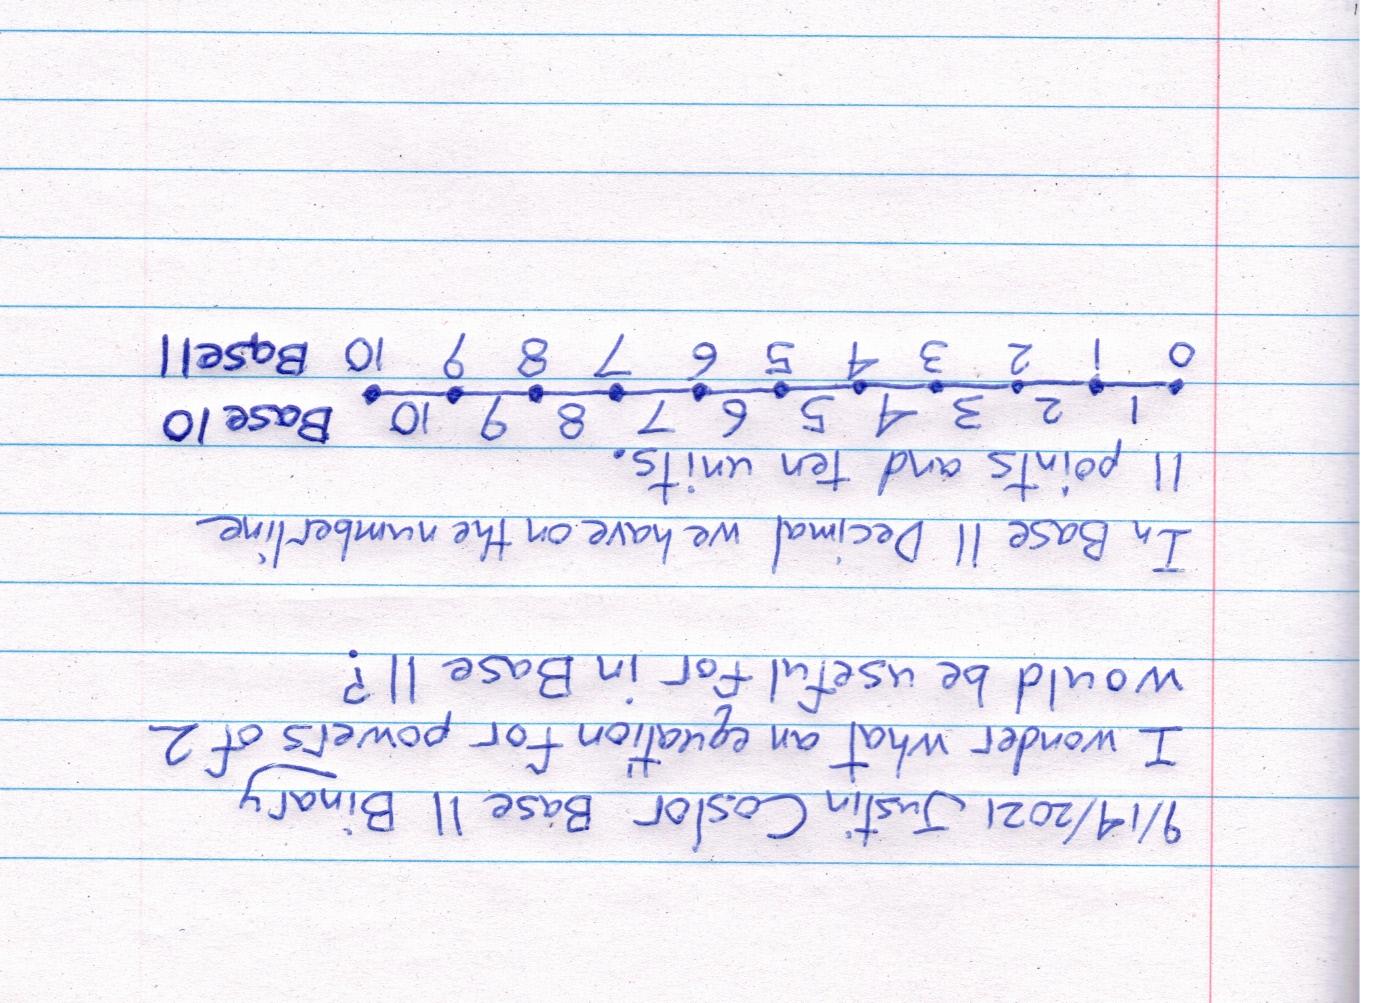 9/14/2021 Justin Coslor Base 11 Binary
I wonder what an equation for powers of 2
would be useful for in Base 11?
In Base 11 Decimal we have on the numberline
11 points and ten units.
1 2 3 4 5 6 7 8 9 10 Base 10
0 1 2 3 4 5 6 7 8 9 10 Base 11